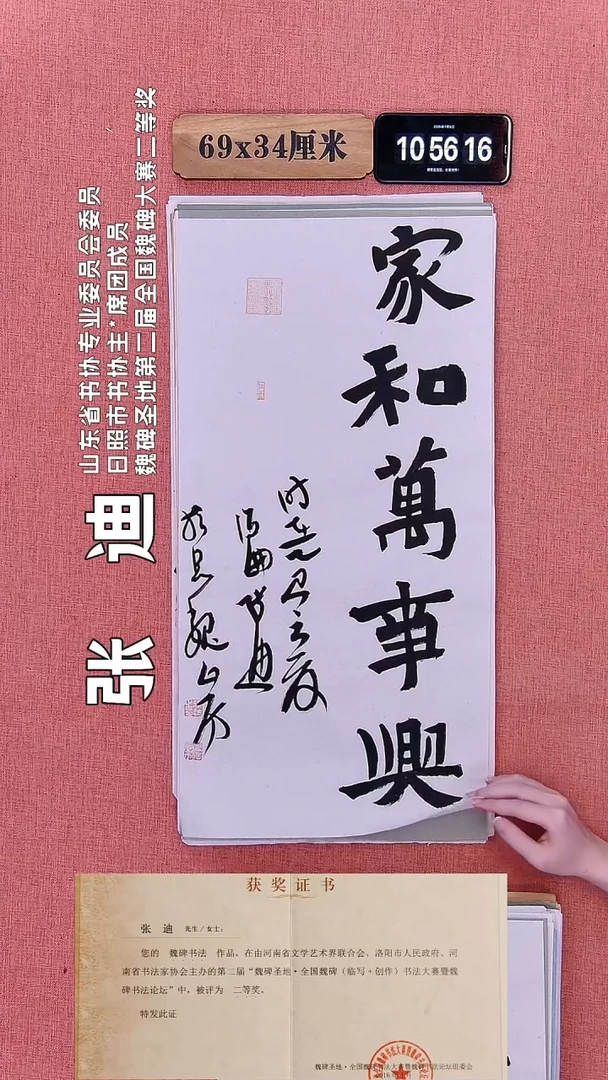 69x34厘米
10 56 16
山东省书协专业委员会委员
日照市书协主*席团成员
魏碑圣地第二届全国魏碑大赛二等奖
张 迪
家和萬事興
获奖证书
张 迪 先生/女士:
您的 魏碑书法 作品,在由河南省文学艺术界联合会、洛阳市人民政府、河
南省书法家协会主办的第二届“魏碑圣地·全国魏碑(临写+创作)书法大赛暨魏
碑书法论坛”中,被评为 二等奖。
特发此证
魏碑圣地·全国魏碑书法大赛暨魏碑书法论坛组委会